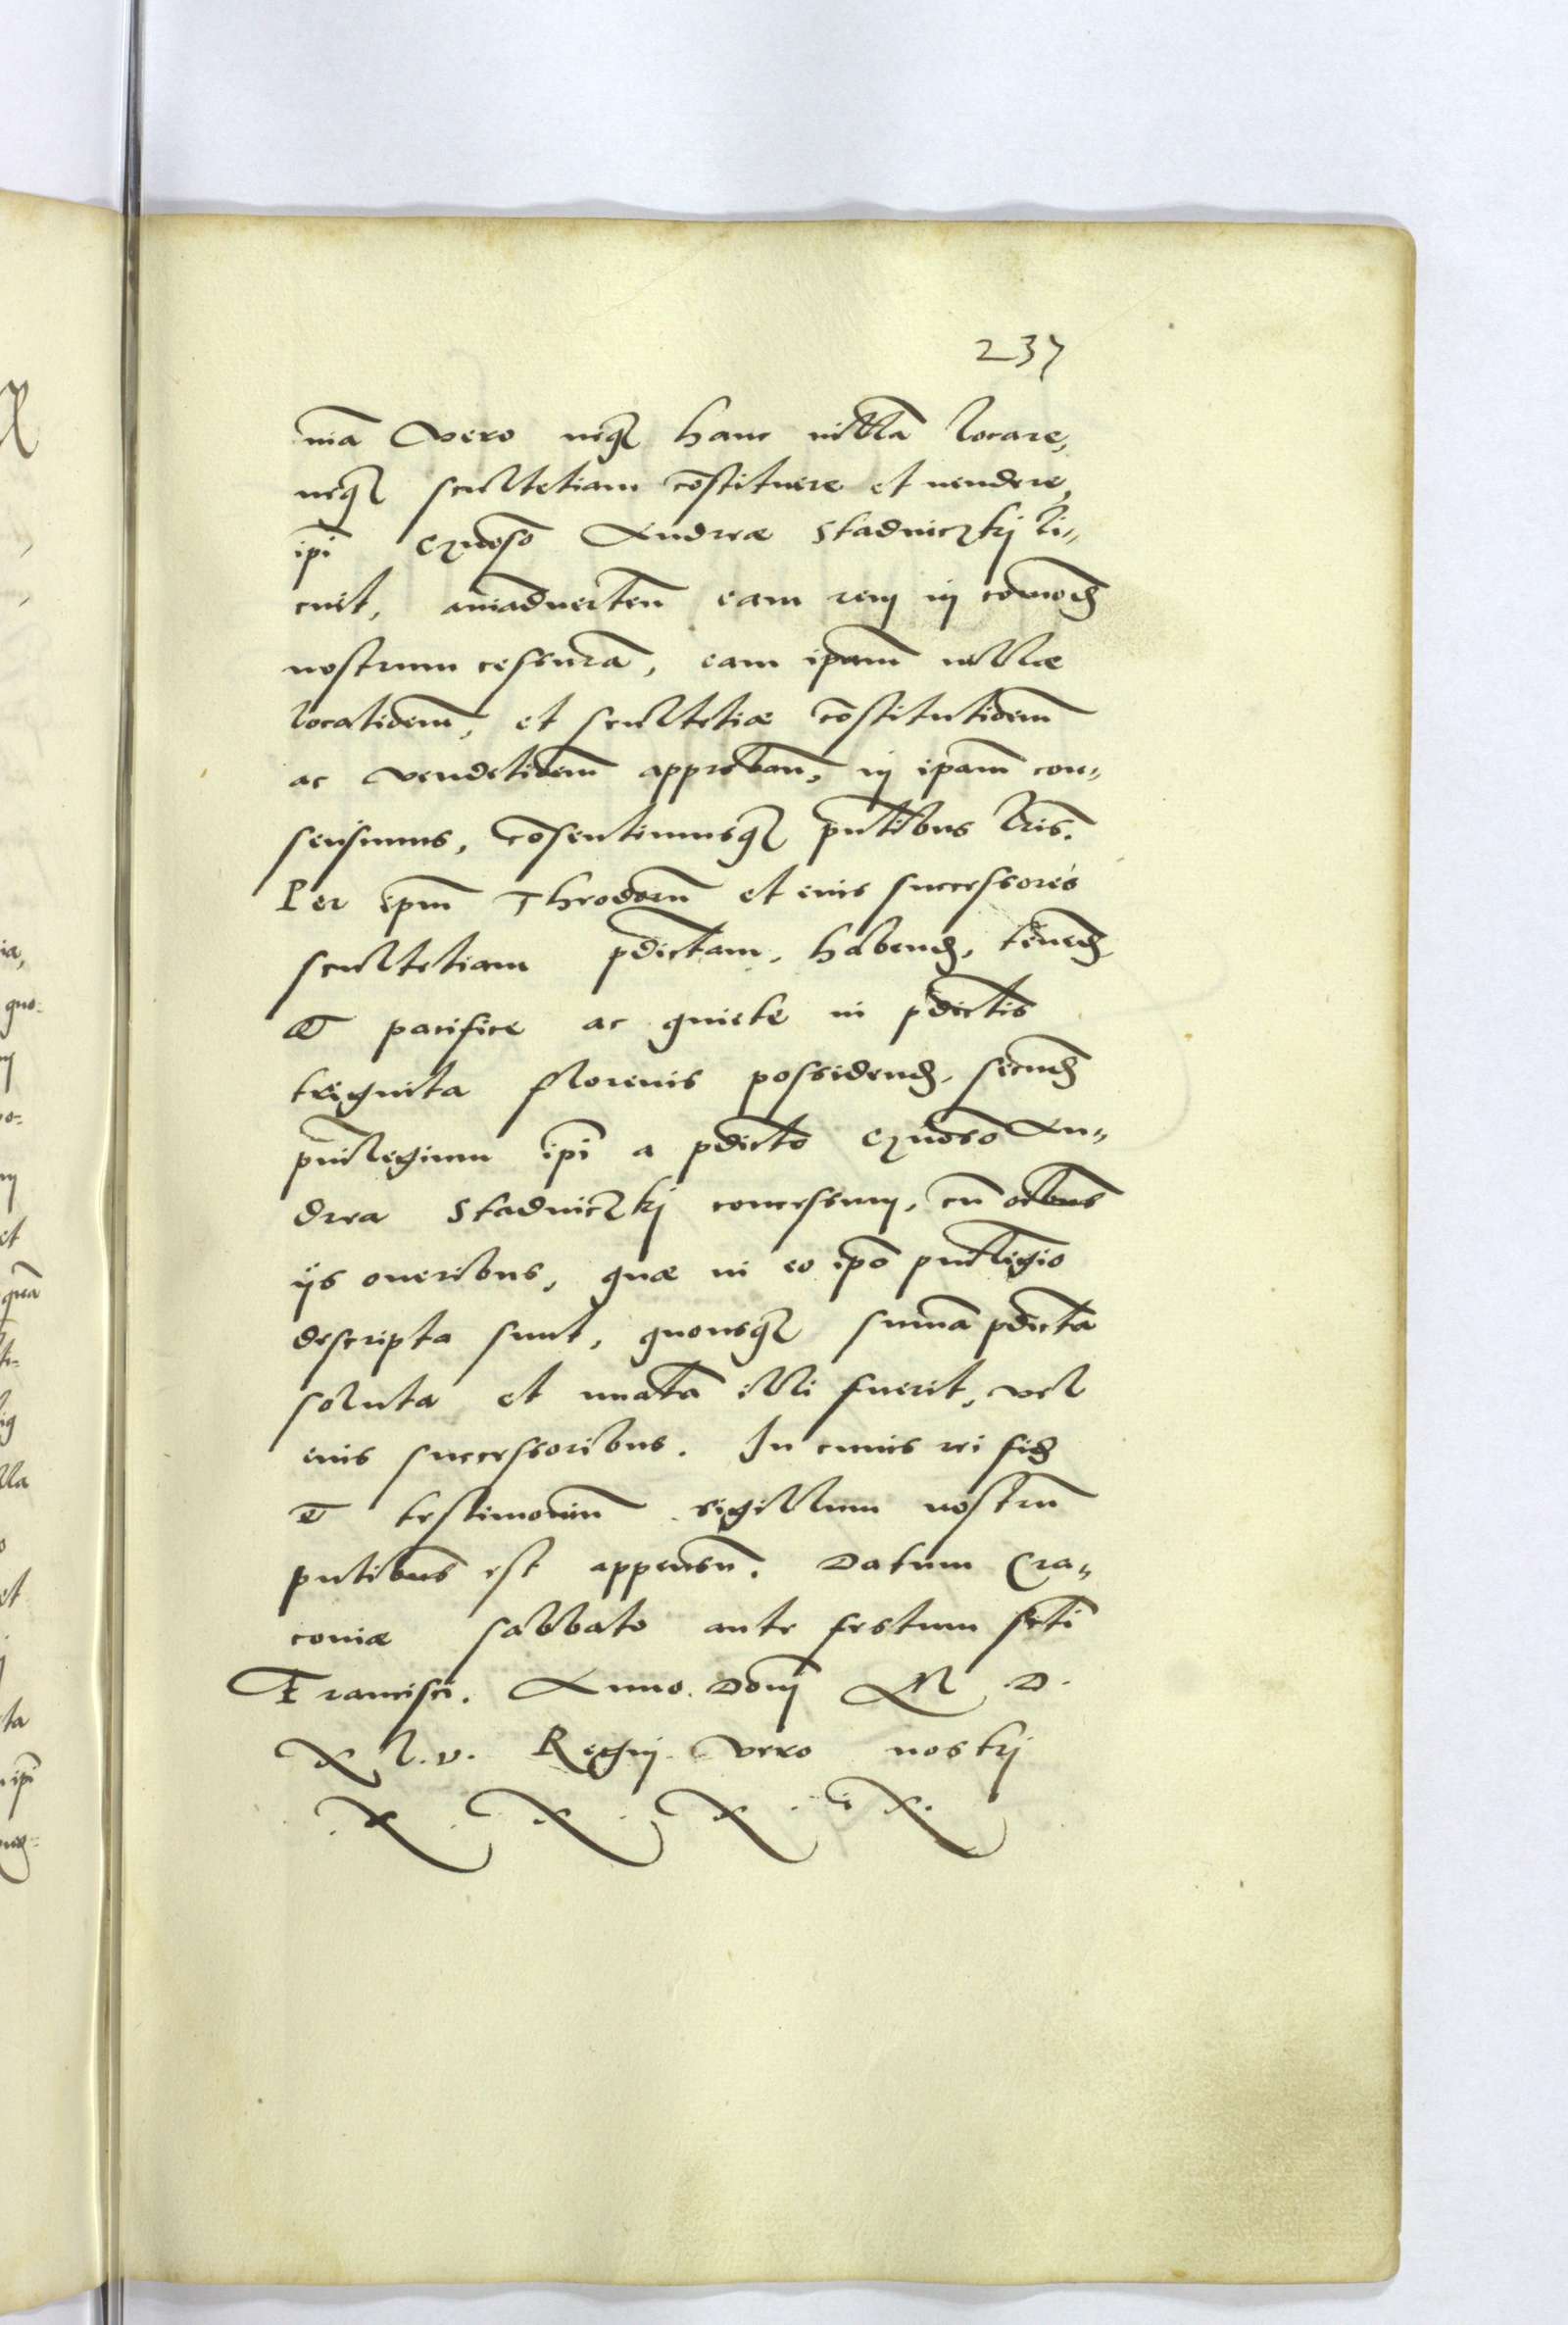 237
nia Vero neqꝫ hanc villā locare,
neqꝫ scultetiam cōstituere et vendere,
ipi Gnōso Andreæ Stadniczkj li=
cuit, aīadverteñ eam rem in cōmodꝫ
nostrum cessurā, eam ipam villæ
locatiōem, et scultetiæ cōstitutiōem
ac venditiōem approbañ, in ipam con=
sensimus, cōsentimusqꝫ pntibus lris.
Per ipm Theodorū et eius successores
scultetiam pdictam, habendꝫ, tenendꝫ
Et pacifice ac quiete in pdictis
triginta florenis possidendꝫ, secundꝫ
privilegium ipi a pdicto Gnōso An=
drea Stadniczkj concessum, cū oībus
ijs oneribus, quæ in eo ipo privilegio
descripta sunt, quousqꝫ summa pdicta
soluta et nuata illi fuerit, vel
eius successoribus. In cuius rei fidꝫ
Et testimoniū sigillum nostrū
pntibus est appensū. Datum Cra=
coviæ sabbato ante festum scti
Francisci. Anno. Domj M D.
X l. v. Regnj. Vero nostrj
. X . X . X . i X.